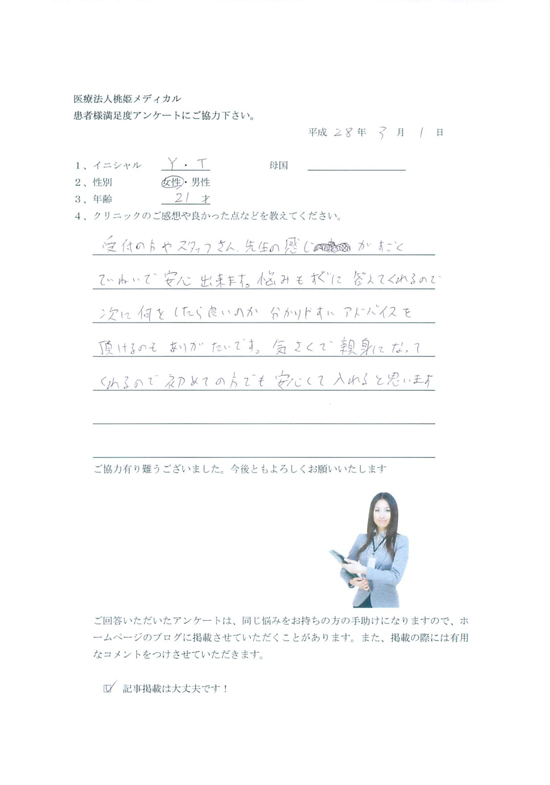 医療法人桃姫メディカル
患者様満足度アンケートにご協力下さい。
平成 28 年 3 月 1 日
1、イニシャル Y・T 母国
2、性別 女性・男性
3、年齢 21 才
4、クリニックのご感想や良かった点などを教えてください。
受付の方やスタッフさん、先生の感じがすごく
ていねいで安心出来ます。悩みもすぐに答えてくれるので
次に何をしたら良いのか分かりやすいアドバイスを
頂けるのもありがたいです。気さくで親身になって
くれるので初めての方でも安心して入れると思います
ご協力有り難うございました。今後ともよろしくお願いいたします
ご回答いただいたアンケートは、同じ悩みをお持ちの方の手助けになりますので、ホ
ームページのブログに掲載させていただくことがあります。また、掲載の際には有用
なコメントをつけさせていただきます。
☑ 記事掲載は大丈夫です！